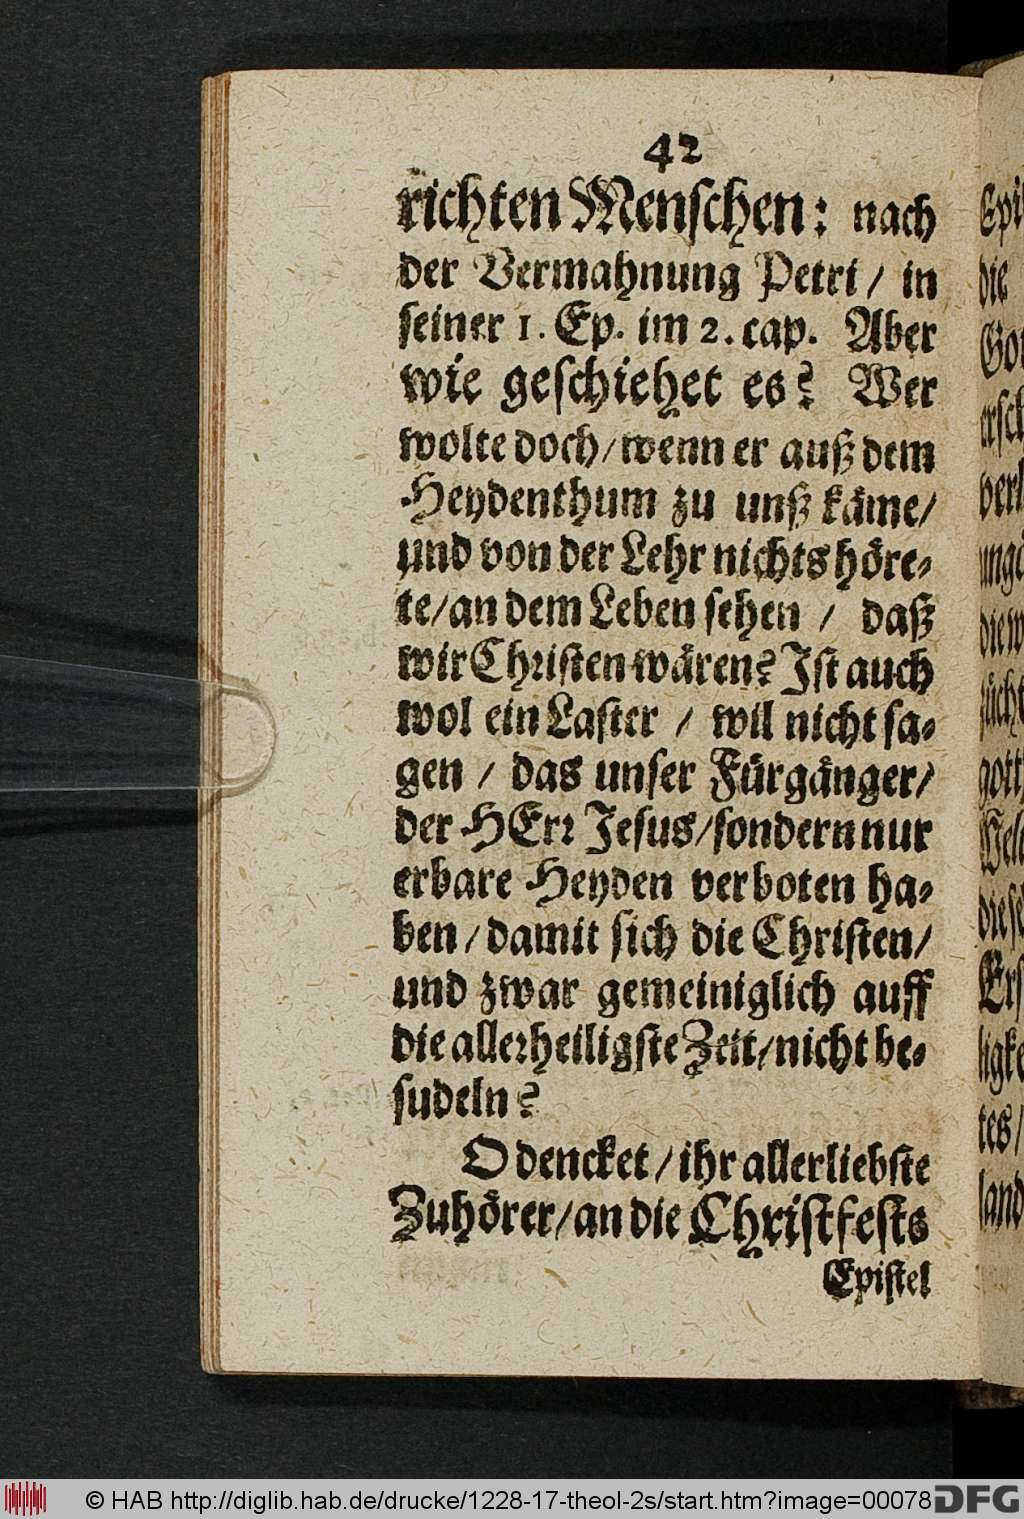 42
richten Menschen: nach
der Vermahnung Petri / in
seiner 1. Ep. im 2. cap. Aber
wie geschiehet es? Wer
wolte doch/wenn er auß dem
Heydenthum zu unß käme/
und von der Lehr nichts höre-
te/an dem Leben sehen / daß
wir Christen wären? Ist auch
wol ein Laster / wil nicht sa-
gen / das unser Fürgänger/
der HErr Jesus/sondern nur
erbare Heyden verboten ha-
ben/damit sich die Christen/
und zwar gemeiniglich auff
die allerheiligste Zeit/nicht be-
sudeln?
O dencket/ihr allerliebste
Zuhörer/an die Christfests
Epistel
© HAB http://diglib.hab.de/drucke/1228-17-theol-2s/start.htm?image=00078
DFG